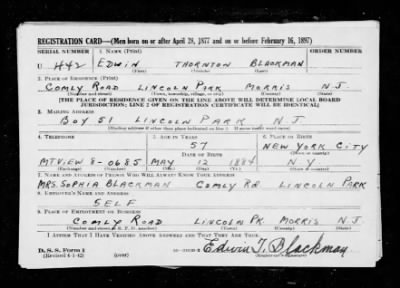 REGISTRATION CARD—(Men born on or after April 28, 1877 and on or before February 16, 1897)
SERIAL NUMBER 1. NAME (Print) ORDER NUMBER
U 442 EDWIN THORNTON BLACKMAN
(First) (Middle) (Last)
2. PLACE OF RESIDENCE (Print)
COMLY ROAD LINCOLN PARK MORRIS N J
(Number and street) (Town, township, village, or city) (County) (State)
[THE PLACE OF RESIDENCE GIVEN ON THE LINE ABOVE WILL DETERMINE LOCAL BOARD
JURISDICTION; LINE 2 OF REGISTRATION CERTIFICATE WILL BE IDENTICAL]
3. MAILING ADDRESS
BOX 51 LINCOLN PARK N J
[Mailing address if other than place indicated on line 2. If same insert word same]
4. TELEPHONE 5. AGE IN YEARS 6. PLACE OF BIRTH
57 NEW YORK CITY
DATE OF BIRTH (Town or county)
MTVIEW 8-0685 MAY 12 1884 N.Y.
(Exchange) (Number) (Mo.) (Day) (Yr.) (State or country)
7. NAME AND ADDRESS OF PERSON WHO WILL ALWAYS KNOW YOUR ADDRESS
MRS. SOPHIA BLACKMAN COMLY RD LINCOLN PARK
8. EMPLOYER'S NAME AND ADDRESS
SELF
9. PLACE OF EMPLOYMENT OR BUSINESS
COMLY ROAD LINCOLN PK MORRIS N J
(Number and street or R. F. D. number) (Town) (County) (State)
I AFFIRM THAT I HAVE VERIFIED ABOVE ANSWERS AND THAT THEY ARE TRUE.
D. S. S. Form 1 Edwin T. Blackman
(Revised 4-1-42) (over) (Registrant's signature)